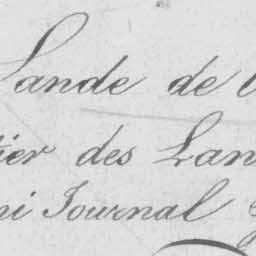 Lande de
des Lan
Journal